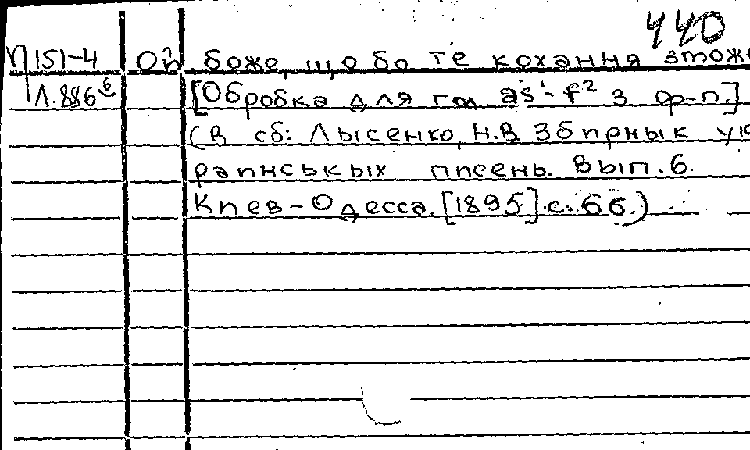 440
П151-4 Ой боже, що бо те кохання зможе
Л.886б [Обробка для гол as¹-f² з ф-п.]
(В сб: Лысенко, Н.В Збирнык ук
раинськых писень. Вып. 6.
Киев-Одесса. [1895] с. 66.)